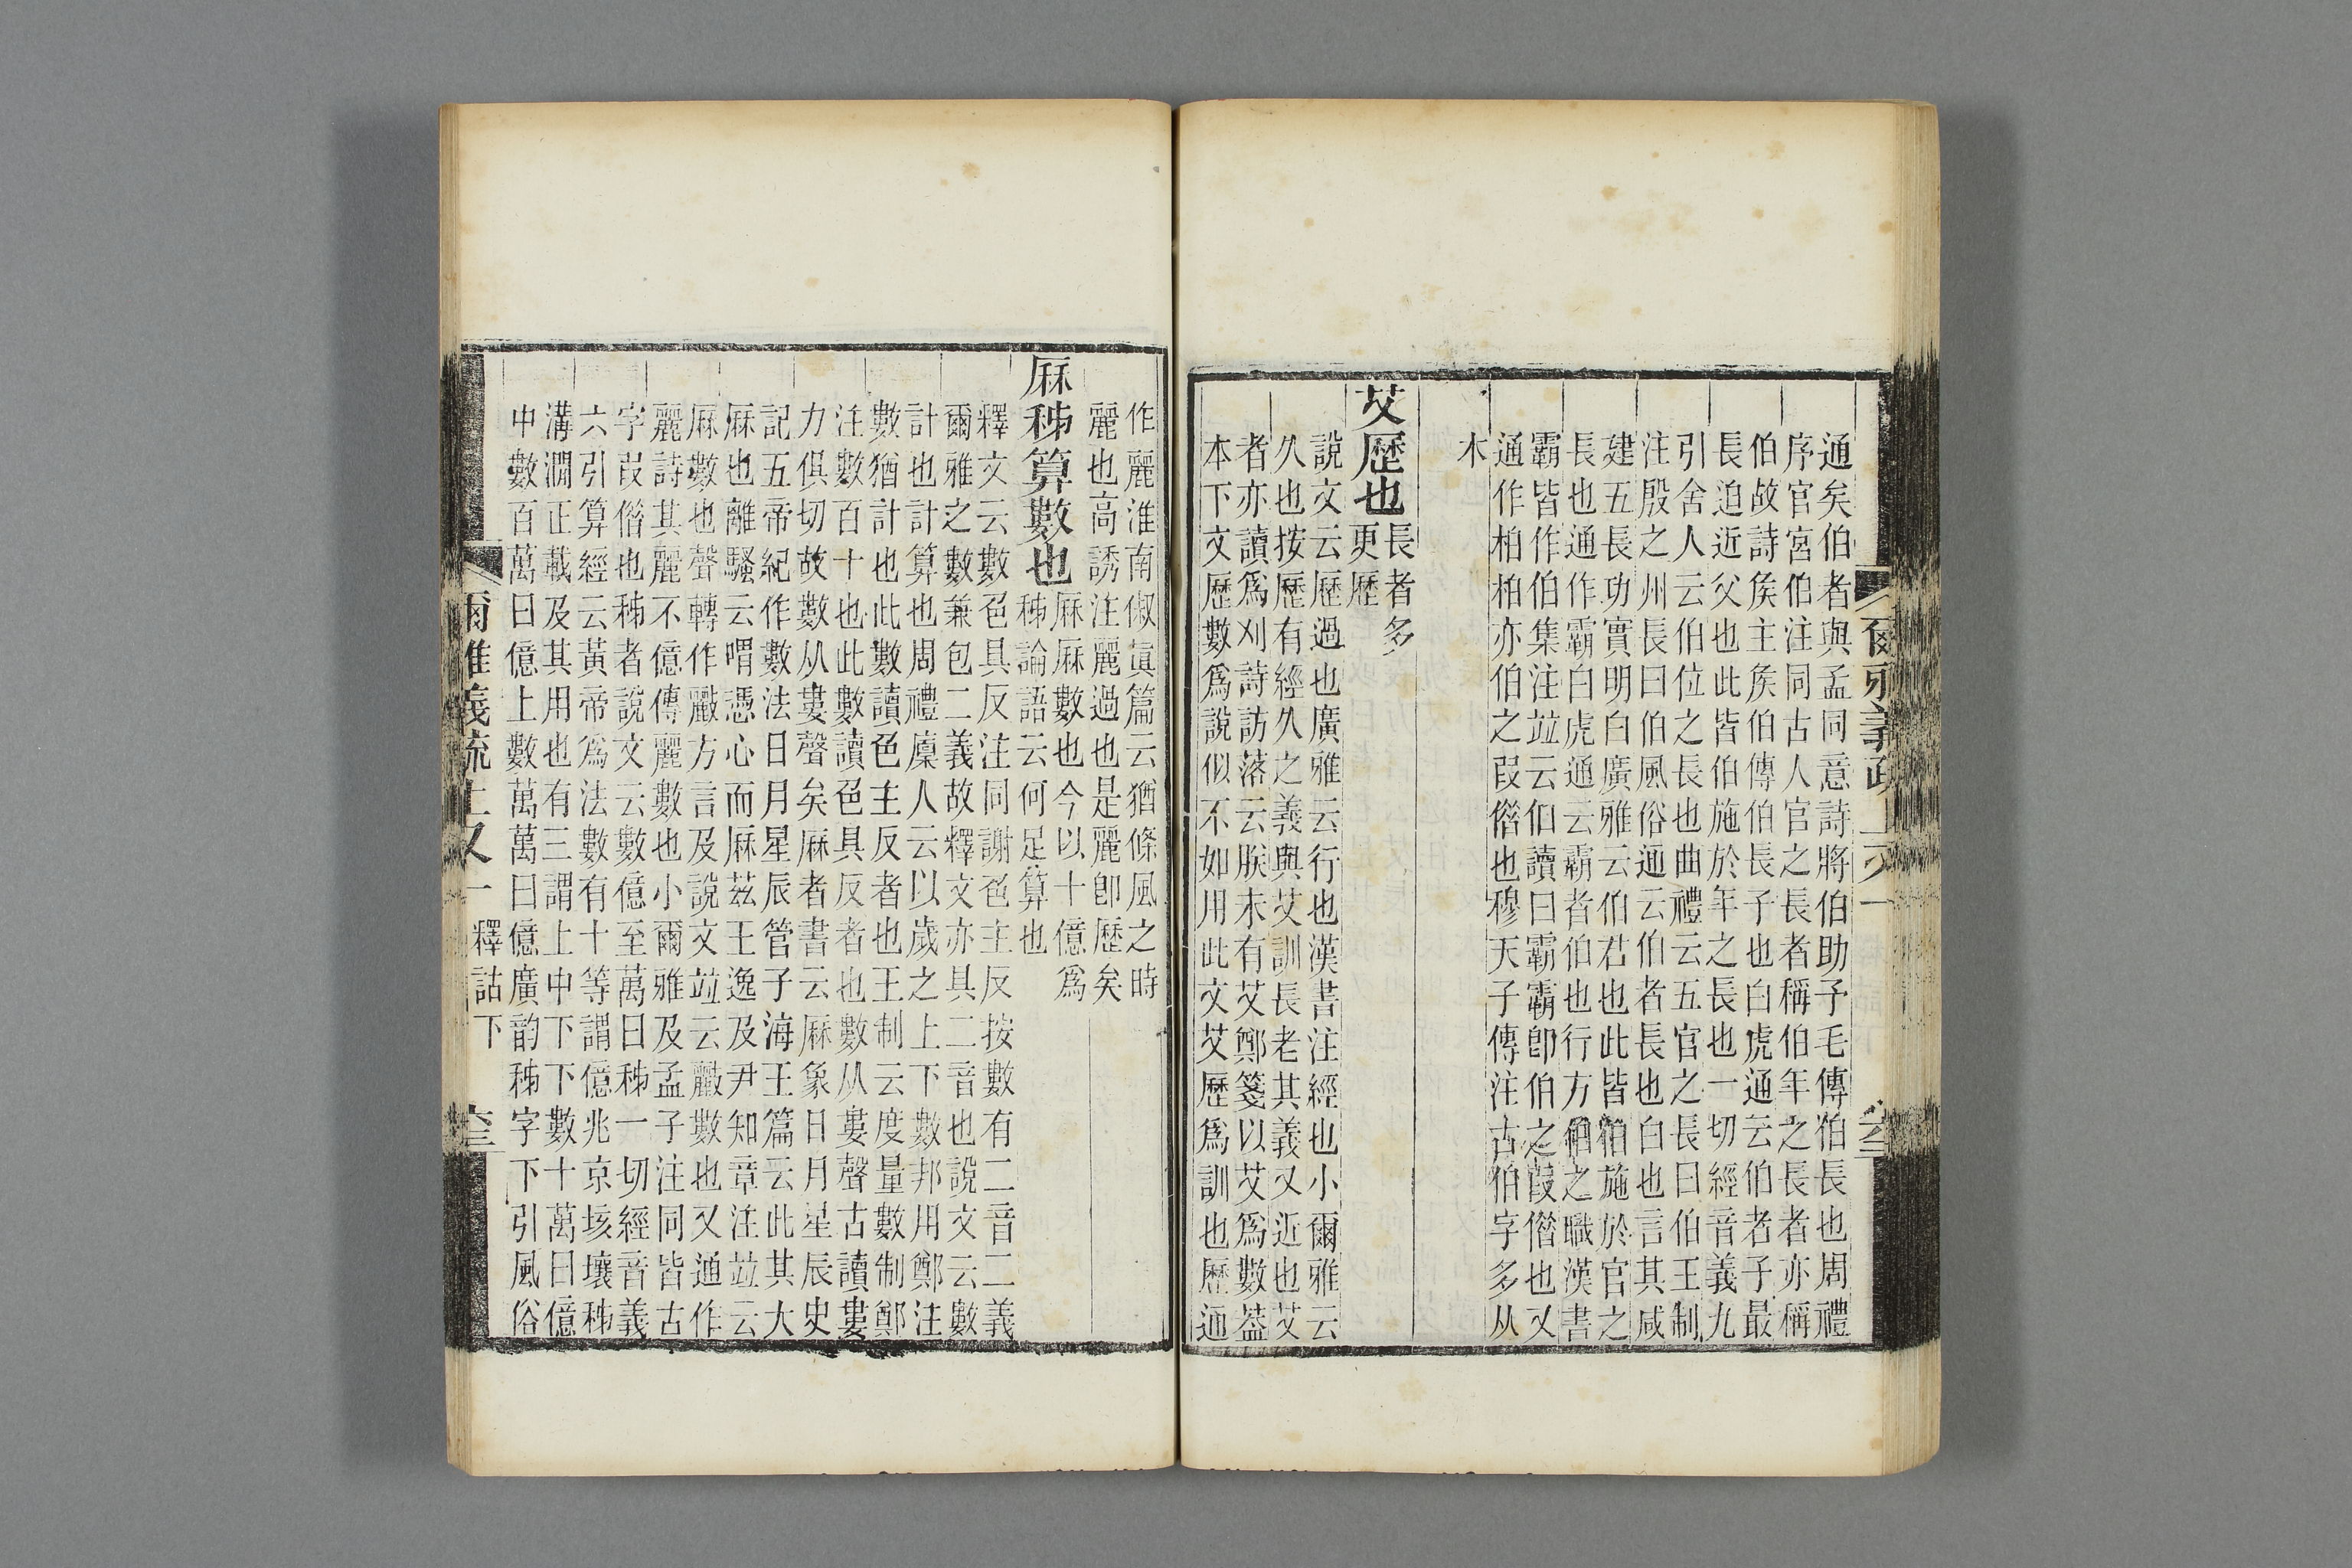 通矣伯者與孟同意詩將伯助予毛傳伯長也周禮
序官宮伯注同古人官之長者稱伯年之長者亦稱
伯故詩矦主矦伯傳伯長子也白虎通云伯者子最
長迫近父也此皆伯施於年之長也一切經音義九
引舍人云伯位之長也曲禮云五官之長曰伯王制
注殷之州長曰伯風俗通云伯者長也白也言其咸
建五長功實明白廣雅云伯君也此皆伯施於官之
長也通作霸白虎通云霸者伯也行方伯之職漢書
霸皆作伯集注竝云伯讀曰霸霸卽伯之叚偺也又
通作柏柏亦伯之叚偺也穆天子傳注古伯字多从
木
艾歷也
長者多
更歷
說文云歷過也廣雅云行也漢書注經也小爾雅云
久也按歷有經久之義與艾訓長老其義又近也艾
者亦讀爲刈詩訪落云朕未有艾鄭箋以艾爲數葢
本下文歷數爲說似不如用此文艾歷爲訓也歷通
爾雅義疏上又一
作麗淮南俶眞篇云猶條風之時
麗也高誘注麗過也是麗卽歷矣
厤秭算數也
厤厤數也今以十億爲
秭論語云何足算也
釋文云數色具反注同謝色主反按數有二音二義
爾雅之數兼包二義故釋文亦具二音也說文云數
計也計算也周禮廩人云以歲之上下數邦用鄭注
數猶計也此數讀色主反者也王制云度量數制鄭
注數百十也此數讀色具反者也數从婁聲古讀婁
力俱切故數从婁聲矣厤者書云厤象日月星辰史
記五帝紀作數法日月星辰管子海王篇云此其大
厤也離騷云喟憑心而厤茲王逸及尹知章注竝云
厤數也聲轉作䚕方言及說文竝云䚕數也又通作
麗詩其麗不億傳麗數也小爾雅及孟子注同皆古
字叚偺也秭者說文云數億至萬曰秭一切經音義
六引算經云黃帝爲法數有十等謂億兆京垓壤秭
溝澗正載及其用也有三謂上中下下數十萬曰億
中數百萬曰億上數萬萬曰億廣韵秭字下引風俗
爾雅義疏上又一 釋詁下 六三